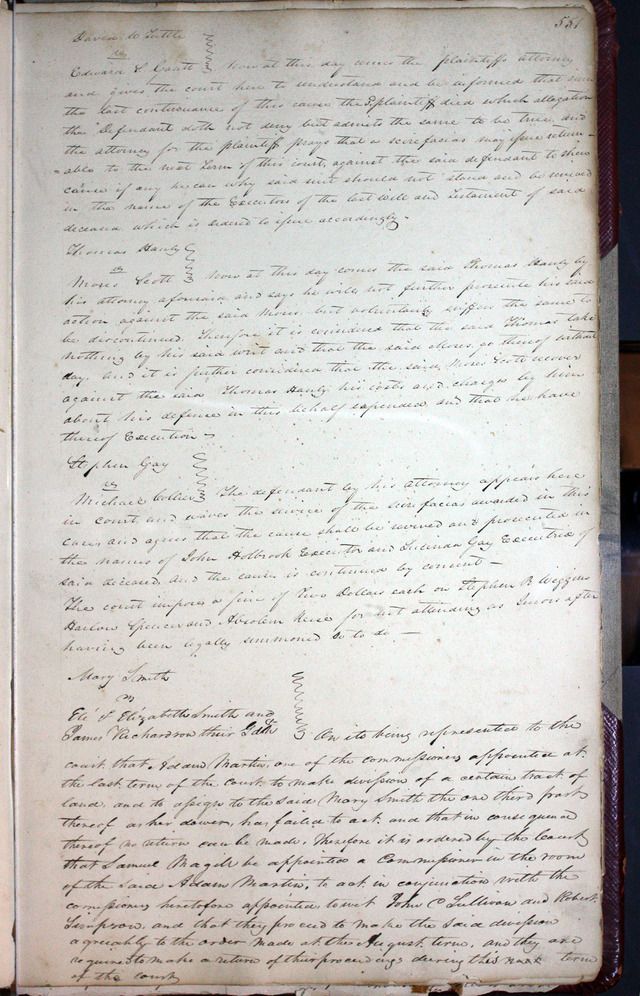 551
David W Tuttle
vs
Edward S Gantt Now at this day comes the plaintiffs attorney
and gives the court here to understand and be informed that since
the last continuance of this cause the plaintiff died which allegation
the Defendant doth not deny but admits the same to be true, and
the attorney for the plaintiff prays that a scire facias may issue return-
able to the next term of this court, against the said defendant to shew
cause if any he can why said suit should not stand and be revived
in the name of the Executors of the last will and testament of said
deceased which is ordered to issue accordingly -
Thomas Hanly
vs
Moris Scott Now at this day comes the said Thomas Hanly by
his attorney aforesaid and says he will not further prosecute his said
action against the said Moris but voluntarily suffers the same to
be discontinued. Therefore it is considered that the said Thomas take
nothing by his said writ and that the said Moris go thereof without
day. and it is further considered that the said Moris Scott recover
against the said Thomas Hanly his costs and charges by him
about his defence in this behalf expended and that he have
thereof Execution -
Stephen Gay
vs
Michael Collier The defendant by his Attorney appears here
in court and waves the service of the scire facias awarded in this
cause and agrees that the cause shall be revived and prosecuted in
the names of John Holbrook Executor and Lucinda Gay Executrix of
said deceased. And the cause is continued by consent -
The court impose a fine of Two Dollars each on Stephen R Wiggins
Harlow Spencer and Absolem Keise for not attending as Jurors after
having been legally summoned so to do -
Mary Smith
vs
Eli & Elizabeth Smith and
James Richardson their Gdn On its being represented to the
court that Adam Martin, one of the commissioners appointed at
the last term of the court to make division of a certain tract of
land, and to assign to the said Mary Smith the one third part
thereof as her dower, has failed to act and that in consequence
thereof no return can be made, Therefore it is ordered by the Court
that Samuel Magill be appointed a Commissioner in the room
of the said Adam Martin, to act in conjunction with the
commissioners heretofore appointed to wit John C Sullivan and Robert
Simpson, and that they proceed to make the said division
agreeably to the order made at the August term, and they are
required to make a return of their proceedings during this term
of the court